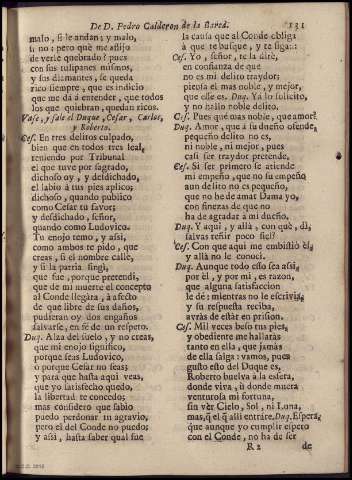 De D. Pedro Calderon de la Barca. 131
malo, si le andan; y malo,
si no: pero què me aflijo
de verle quebrado? pues
con sus tulipanes mismos,
y sus diamantes, se queda
rico siempre, que es indicio
que me dá à entender, que todos
los que quiebran, quedan ricos.
Vase, y sale el Duque, Cesar, Carlos,
y Roberto.
Ces. En tres delitos culpado,
bien que en todos tres leal,
teniendo por Tribunal
el que tuve por sagrado,
dichoso oy, y desdichado,
el labio à tus pies aplico;
dichoso, quando publico
como Cesar tu favor;
y desdichado, señor,
quando como Ludovico.
Tu enojo temo, y assi,
como ambos te pido, que
creas, si el nombre callè,
y si la patria fingì,
que fue, porque pretendì,
que de mi muerte el concepto
al Conde llegára, à efecto
de que libre de sus daños,
pudieran oy dos engaños
salvarse, en fè de un respeto.
Duq. Alza del suelo, y no creas,
que mi enojo significo,
porque seas Ludovico,
ò porque Cesar no seas:
y para que hasta aqui veas,
que yo satisfecho quedo,
la libertad te concedo;
mas considero que sabio
puedo perdonar mi agravio,
pero el del Conde no puedo;
y assi, hasta saber qual fue
la causa que al Conde obliga
à que te busque, y te siga::
Ces. Yo, señor, te la dirè,
en confianza de que
no es mi delito traydor;
piensa el mas noble, y mejor,
que esse es. Duq. Ya lo solicito,
y no hallo noble delito.
Ces. Pues què mas noble, que amor?
Duq. Amor, que à su dueño ofende,
pequeño delito no es,
ni noble, ni mejor, pues
casi ser traydor pretende.
Ces. Si ser primero se atiende
mi empeño, que no su empeño
aun delito no es pequeño,
que no he de amar Dama yo,
con finezas de que no
ha de agradar à mi dueño.
Duq. Y aqui, y allà, con què, dì,
salvas reñir poco fiel?
Ces. Con que aqui me embistiò èl,
y allà no le conocì.
Duq. Aunque todo esso sea assi,
por èl, y por mì, es razon,
que alguna satisfaccion
le dè: mientras no le escriva,
y su respuesta reciba,
avràs de estár en prision.
Ces. Mil veces beso tus pies,
y obediente me hallaràs
tanto en ella, que jamàs
de ella salga: vamos, pues
gusto esto del Duque es,
Roberto buelva à la esfera,
donde viva, ù donde muera
venturosa mi fortuna,
sin vèr Cielo, Sol, ni Luna,
mas, què el què alli entrare. Duq. Espera,
que aunque yo cumplir espero
con el Conde, no ha de ser
R 2 de